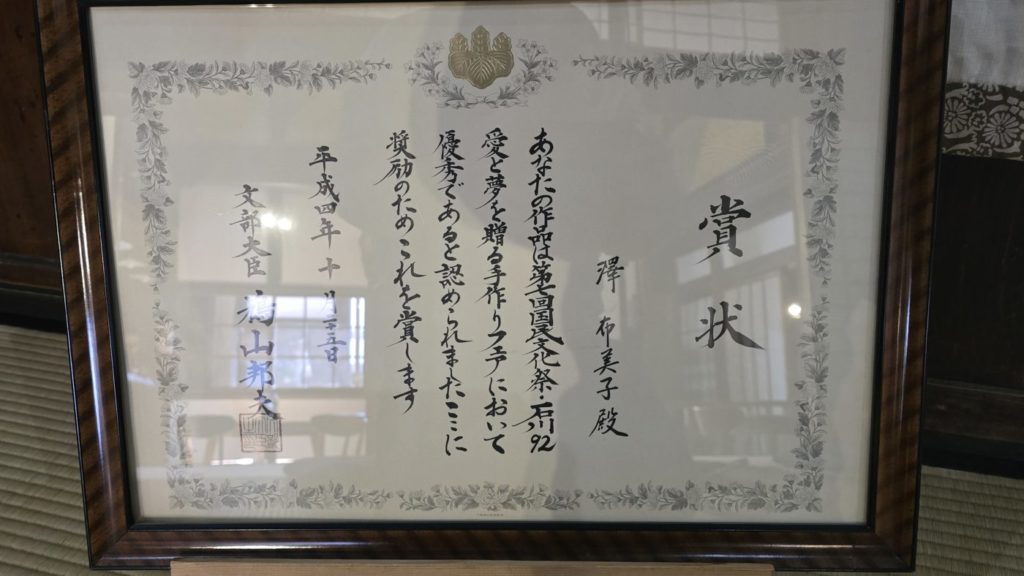 賞状
澤布美子殿
あなたの作品は第七回国民文化祭・石川92
愛と夢を贈る手作りフェアにおいて
優秀であると認められましたここに
奨励のためこれを賞します
平成四年十月二十五日
文部大臣 鳩山邦夫